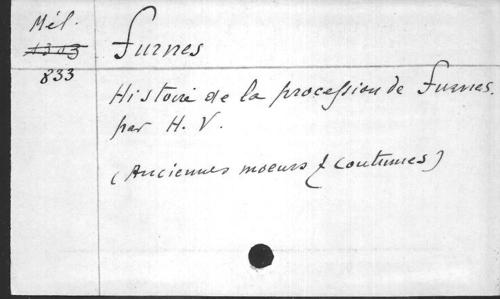 Mél.
1313
833
Furnes
Histoire de la procession de Furnes.
par H. V.
(Anciennes moeurs & coutumes)